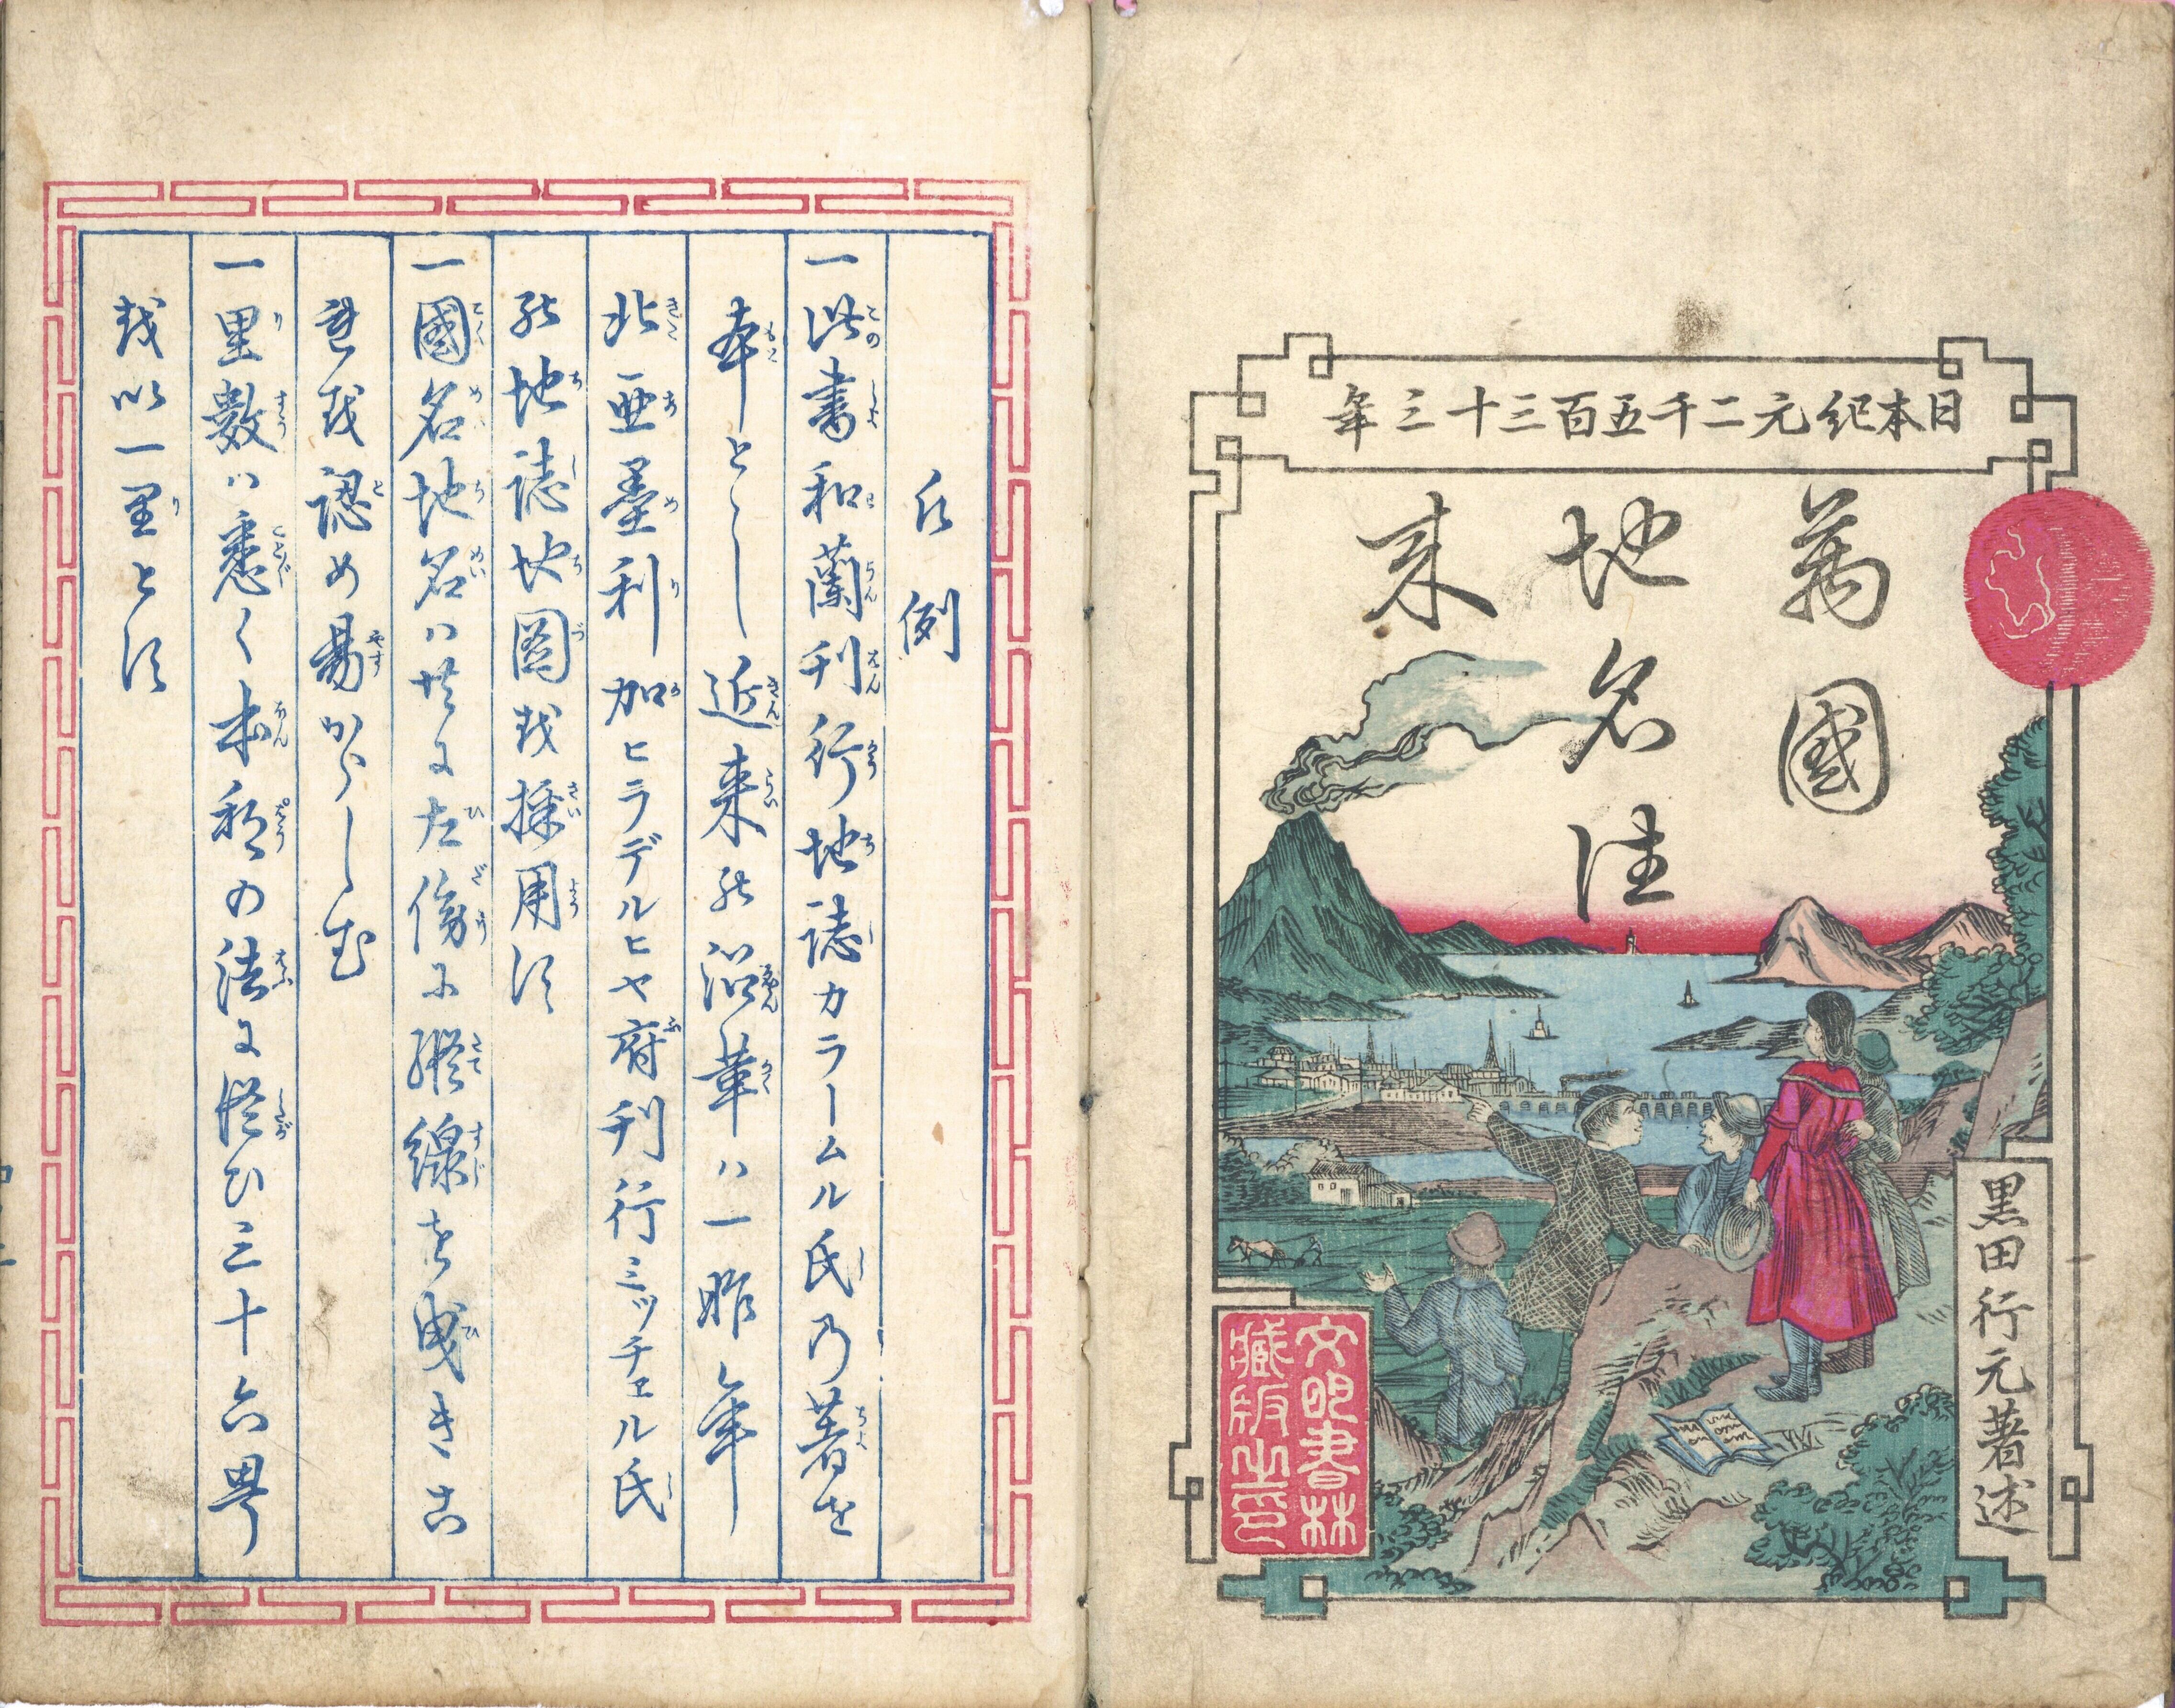 日本紀元二千五百三十三年
萬國
地名往
来
黒田行元著述
文明書林
蔵版之印
凡例
一此書和蘭刊行地誌カラームル氏乃著を
本とし近来能沿革ハ一昨年
北亜墨利加ヒラデルヒヤ府刊行ミッチェル氏
能地誌地圖越採用須
一國名地名ハ共に左傍に縦線を曳きこ
れ越認め易からしむ
一里數ハ悉く本邦の法に従ひ三十六町
越以一里と須